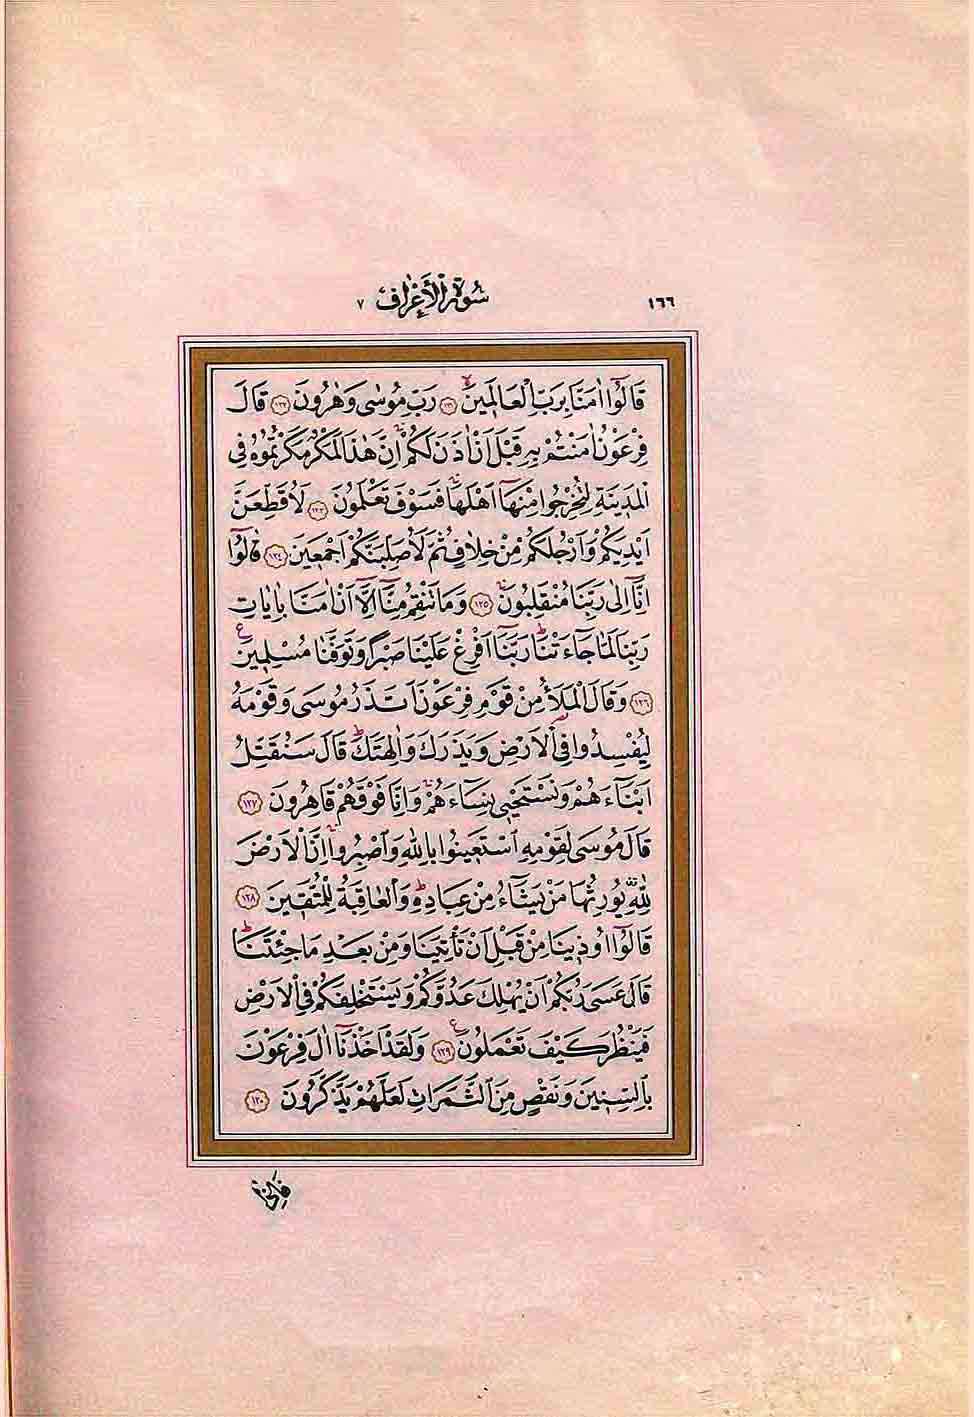 ١٦٦ سُورَةُ الْأَعْرَافِ ٧
قَالُٓوا اٰمَنَّا بِرَبِّ الْعَالَمٖينَۙ ١٢١ رَبِّ مُوسٰى وَهٰرُونَ ١٢٢ قَالَ
فِرْعَوْنُ اٰمَنْتُمْ بِهٖ قَبْلَ اَنْ اٰذَنَ لَكُمْۚ اِنَّ هٰذَا لَمَكْرٌ مَكَرْتُمُوهُ فِي
الْمَدٖينَةِ لِتُخْرِجُوا مِنْهَٓا اَهْلَهَاۚ فَسَوْفَ تَعْلَمُونَ ١٢٣ لَاُقَطِّعَنَّ
اَيْدِيَكُمْ وَاَرْجُلَكُمْ مِنْ خِلَافٍ ثُمَّ لَاُصَلِّبَنَّكُمْ اَجْمَعٖينَ ١٢٤ قَالُٓوا
اِنَّٓا اِلٰى رَبِّنَا مُنْقَلِبُونَۚ ١٢٥ وَمَا تَنْقِمُ مِنَّٓا اِلَّٓا اَنْ اٰمَنَّا بِاٰيَاتِ
رَبِّنَا لَمَّا جَٓاءَتْنَاۜ رَبَّنَٓا اَفْرِغْ عَلَيْنَا صَبْرًا وَتَوَفَّنَا مُسْلِمٖينَ ع
١٢٦ وَقَالَ الْمَلَاُ مِنْ قَوْمِ فِرْعَوْنَ اَتَذَرُ مُوسٰى وَقَوْمَهُ
لِيُفْسِدُوا فِي الْاَرْضِ وَيَذَرَكَ وَاٰلِهَتَكَۜ قَالَ سَنُقَتِّلُ
اَبْنَٓاءَهُمْ وَنَسْتَحْيٖي نِسَٓاءَهُمْۚ وَاِنَّا فَوْقَهُمْ قَاهِرُونَ ١٢٧
قَالَ مُوسٰى لِقَوْمِهِ اسْتَعٖينُوا بِاللّٰهِ وَاصْبِرُواۚ اِنَّ الْاَرْضَ
لِلّٰهِ يُورِثُهَا مَنْ يَشَٓاءُ مِنْ عِبَادِهٖۜ وَالْعَاقِبَةُ لِلْمُتَّقٖينَ ١٢٨
قَالُٓوا اُوذٖينَا مِنْ قَبْلِ اَنْ تَأْتِيَنَا وَمِنْ بَعْدِ مَا جِئْتَنَاۜ
قَالَ عَسٰى رَبُّكُمْ اَنْ يُهْلِكَ عَدُوَّكُمْ وَيَسْتَخْلِفَكُمْ فِي الْاَرْضِ
فَيَنْظُرَ كَيْفَ تَعْمَلُونَ ع ١٢٩ وَلَقَدْ اَخَذْنَٓا اٰلَ فِرْعَوْنَ
بِالسِّنٖينَ وَنَقْصٍ مِنَ الثَّمَرَاتِ لَعَلَّهُمْ يَذَّكَّرُونَ ١٣٠
فَاِذَا